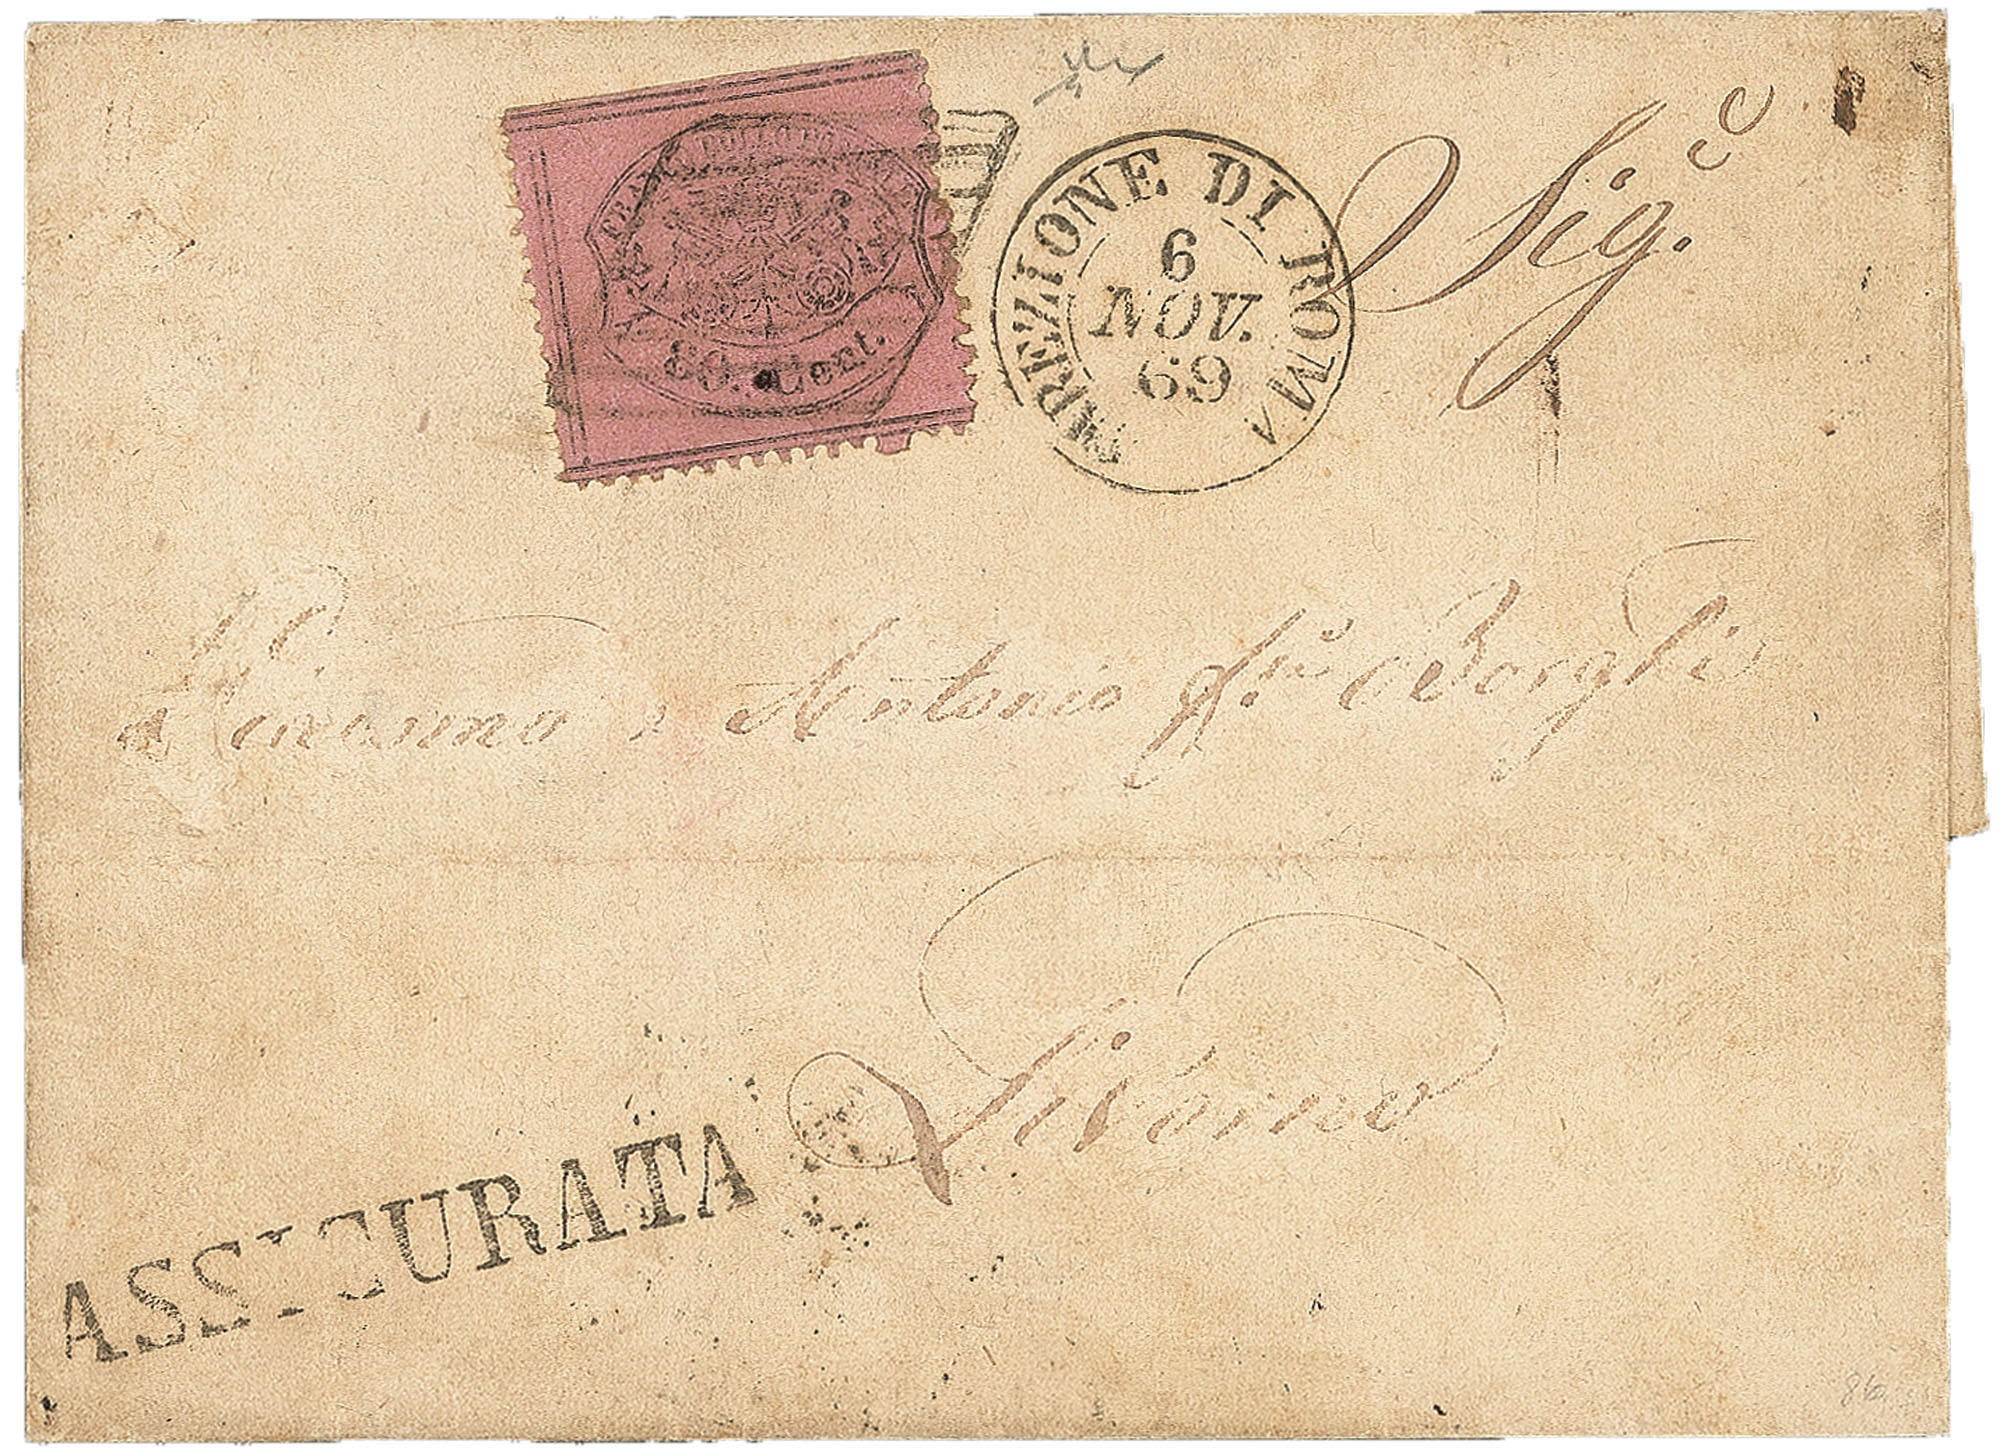 FRANCO BOLLO POSTALE
80. Cent.
DIREZIONE DI ROMA
6
NOV.
69
Sig.ri
Antonio Borghi
Livorno
ASSICURATA